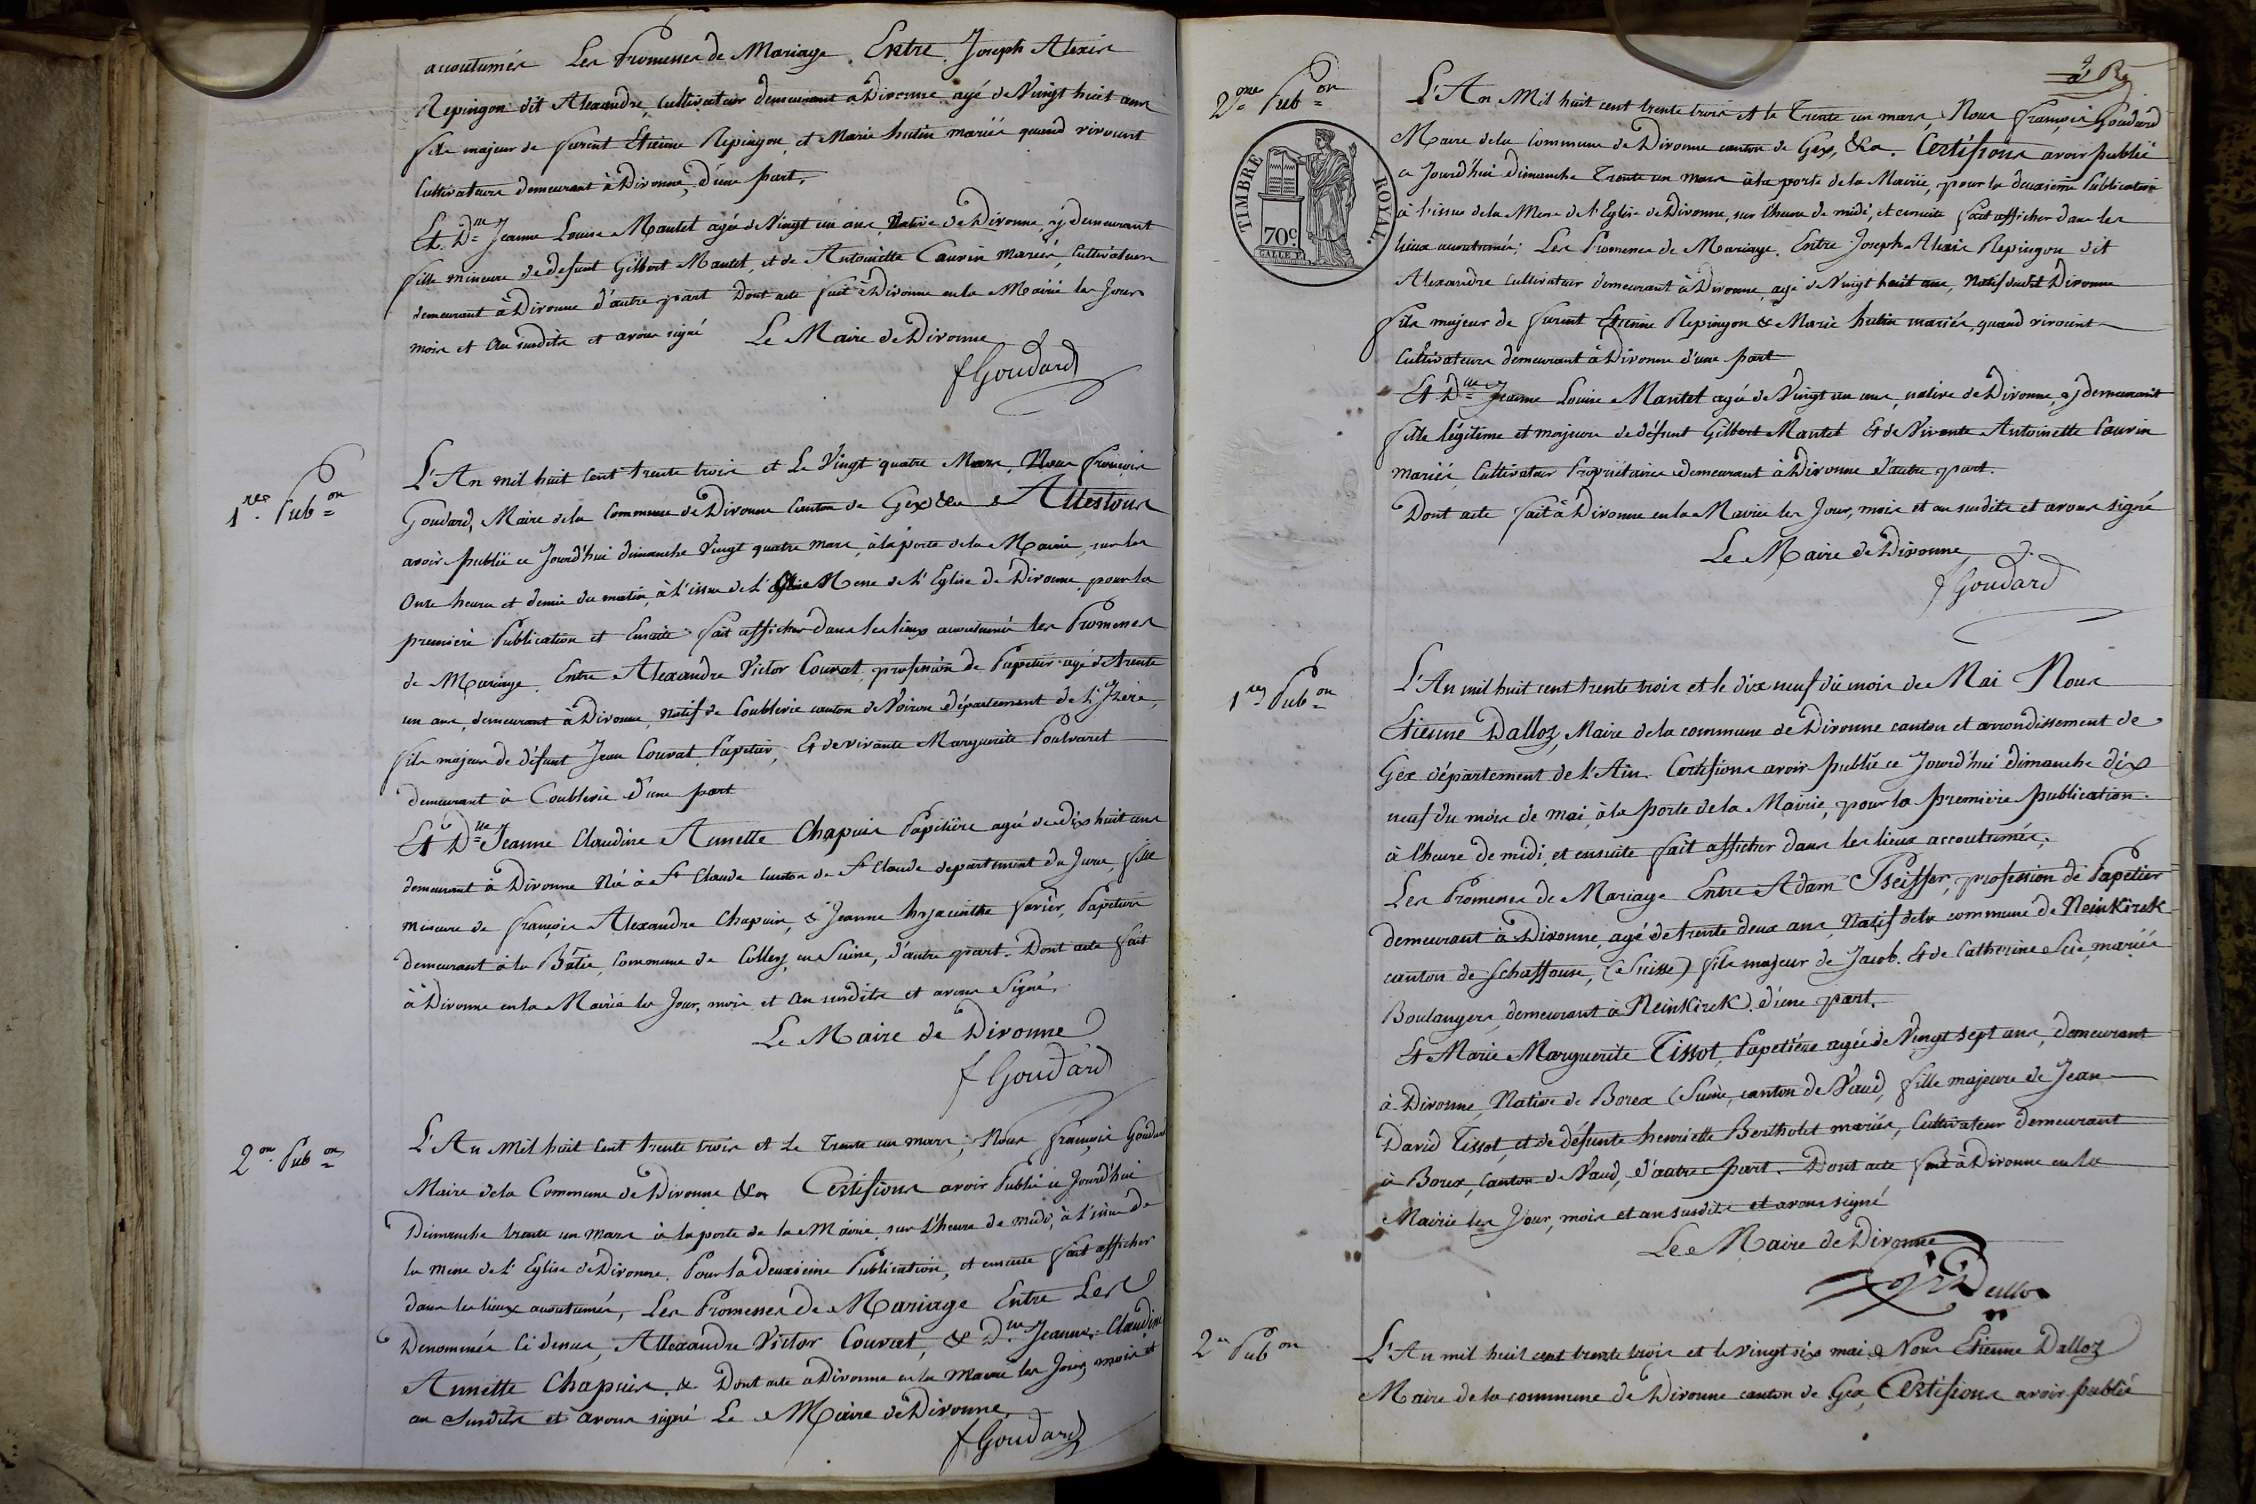 accoutumés Les Promesses de Mariage. Entre Joseph Alexis
Repingon dit Alexandre, Cultivateur demeurant à Divonne agé de Vingt huit ans
fils majeur de furent Etienne Repingon, et Marie hutin mariés quand vivoient
Cultivateurs demeurant à Divonne, d'une part,
Et Dlle Jeanne Louise Mantel agée de Vingt un ans, Native de Divonne, y demeurant
fille mineure de defunt Gilbert Mantel, et de Antoinette Cauvin mariés, Cultivateurs
demeurant à Divonne d'autre part Dont acte fait à Divonne en la Mairie les Jour
mois et An susdits et avons signé Le Maire de Divonne
f Goudard
1re Pubon
L'An mil huit Cent trente trois et Le Vingt quatre Mars, Nous françois
Goudard, Maire de la Commune de Divonne Canton de Gex &ca Attestons
avoir publié ce Jourd'hui dimanche Vingt quatre mars, à la porte de la Mairie, sur les
Onze heures et demie du matin, à l'issue de l' Messe de l'Eglise de Divonne, pour la
premiere Publication et Ensuite fait afficher dans les lieux accoutumés les Promesses
de Mariage. Entre Alexandre Victor Couvat, profession de Papetier agé de trente
un ans, demeurant à Divonne, natif de Coublevie canton de Voiron département de l'Izère,
fils majeur de défunt Jean Couvat Papetier, Et de vivante Marguerite
demeurant à Coublevie d'une part
Et Dlle Jeanne Claudine Annette Chapuis Papetière agée de Dix huit ans
demeurant à Divonne Née à St Claude Canton de St Claude departement du Jura, fille
mineure de françois Alexandre Chapuis, & Jeanne hyacinthe favier, Papetiers
demeurant à la Batie, Commune de Collex, en Suisse, d'autre part. Dont acte fait
à Divonne en la Mairie les Jour, mois et An susdits et avons Signé.
Le Maire de Divonne
f Goudard
2on Pubon
L'An Mil huit Cent trente trois et Le Trente un mars, Nous françois Goudard
Maire de la Commune de Divonne &ca Certifions avoir Publié ce Jourd'hui
Dimanche trente un Mars à la porte de la Mairie, sur l'heure de midi, à l'issue de
la messe de l'Eglise de Divonne. Pour la Deuxieme Publication, et ensuite fait afficher
dans les lieux accoutumés, Les Promesses de Mariage Entre Les
Denommés Ci dessus, Allexandre Victor Couvat, & Dlle Jeanne Claudine
Annette Chapuis. & Dont acte à Divonne en la Mairie les Jour, mois et
an Susdits et avons signé Le Maire de Divonne,
f Goudard
2me Pubon
TIMBRE ROYAL.
70c
L'An Mil huit cent trente trois et le Trente un mars, Nous françois Goudard
Maire de la Commune de Divonne canton de Gex, &ca. Certifions avoir publié
ce Jourd'hui dimanche Trente un Mars à la porte de la Mairie, pour la deuxieme Publication
à l'issue de la Messe de l'Eglise de Divonne, sur l'heure de midi, et ensuite fait afficher dans les
lieux accoutumés; Les Promesses de Mariage. Entre Joseph Alexis Repingon dit
Alexandre Cultivateur demeurant à Divonne, agé de Vingt huit ans, Natif dudit Divonne
fils majeur de furent Etienne Repingon & Marie hutin mariés, quand vivoient
Cultivateurs demeurant à Divonne d'une part
Et Dlle Jeanne Louise Mantel agée de Vingt un ans, native de Divonne, y demeurant
fille légitime et majeure de défunt Gilbert Mantel Et de Vivante Antoinette Cauvin
mariés, Cultivateur Propriétaires demeurant à Divonne d'autre part.
Dont acte fait à Divonne en la Mairie les Jour, mois et an susdits et avons signé
Le Maire de Divonne
f Goudard
1re Pubon
L'An mil huit cent trente trois et le dix neuf du mois de Mai Nous
Etienne Dalloz, Maire de la commune de Divonne canton et arrondissement de
Gex département de l'Ain. Certifions avoir publié ce Jourd'hui dimanche dix
neuf du mois de mai, à la porte de la Mairie, pour la premiere publication
à l'heure de midi, et ensuite fait afficher dans les lieux accoutumés,
Les Promesses de Mariage Entre Adam Pfeiffer, profession de Papetier
demeurant à Divonne, agé de trente deux ans, Natif de la commune de Neinkirck
canton de Schaffouse, (Suisse) fils majeur de Jacob. Et de Catherine mariés
Boulangers, demeurant à Neinkirck d'une part.
Et Marie Marguerite Tissot, Papetière agée de Vingt sept ans, demeurant
à Divonne, Native de Borex (Suisse, canton de Vaud, fille majeure de Jean
David Tissot, et de défunte henriette Bertholet mariés, Cultivateur demeurant
à Borex, Canton de Vaud, d'autre part. Dont acte fait à Divonne en la
Mairie les Jour, mois et an susdits et avons signé
Le Maire de Divonne
Dalloz
2e Pubon
L'An mil huit cent trente trois et le vingt six mai & Nous Etienne Dalloz
Maire de la commune de Divonne canton de Gex, Certifions avoir publié